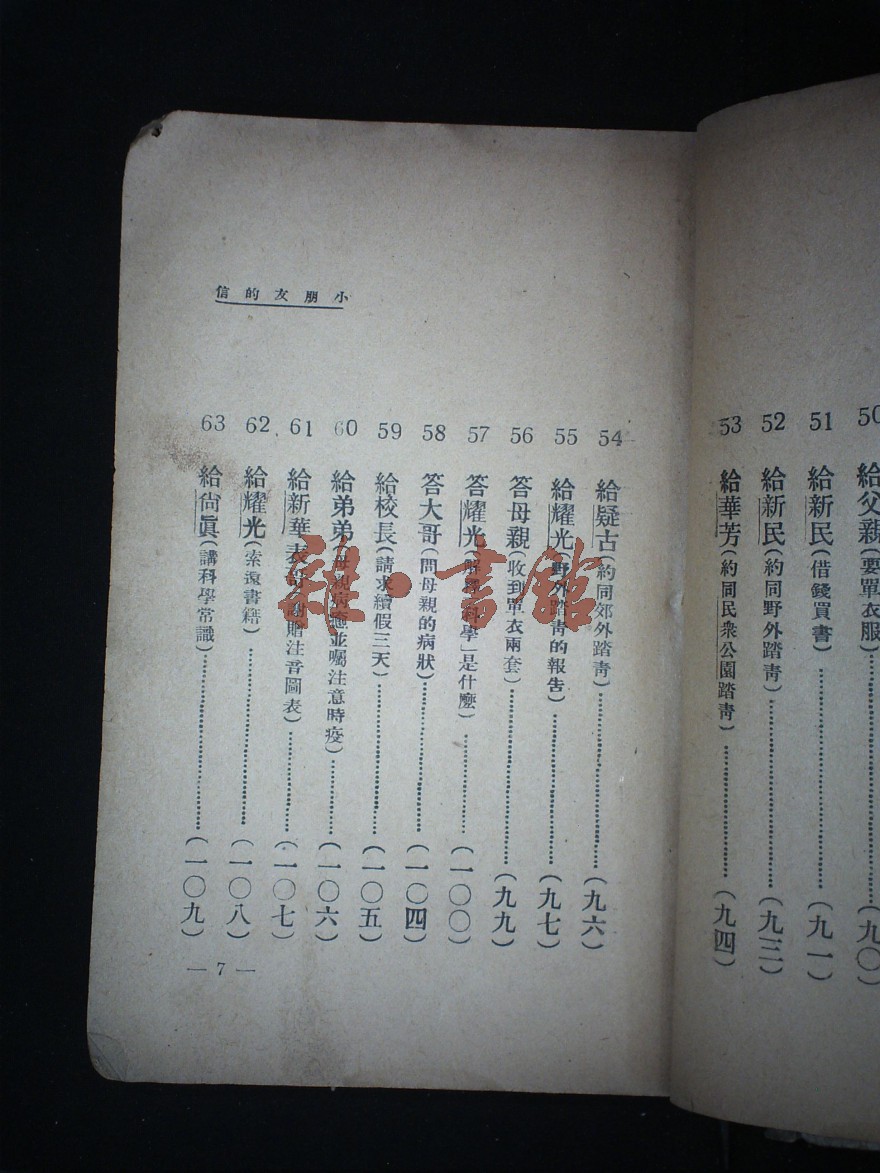 50 給父親(要單衣服)……(九〇)
51 給新民(借錢買書)……(九一)
52 給新民(約同野外踏靑)……(九三)
53 給華芳(約同民衆公園踏靑)……(九四)
小朋友的信
54 給疑古(約同郊外踏靑)……(九六)
55 給耀光(野外踏靑的報告)……(九七)
56 答母親(收到單衣兩套)……(九九)
57 答耀光(解釋「科學」是什麼)……(一〇〇)
58 答大哥(問母親的病狀)……(一〇四)
59 給校長(請求續假三天)……(一〇五)
60 給弟弟(母親病癒並囑注意時疫)……(一〇六)
61 給新華表(謝贈注音圖表)……(一〇七)
62 給耀光(索還書籍)……(一〇八)
63 給尙眞(講科學常識)……(一〇九)
— 7 —
雜·書館